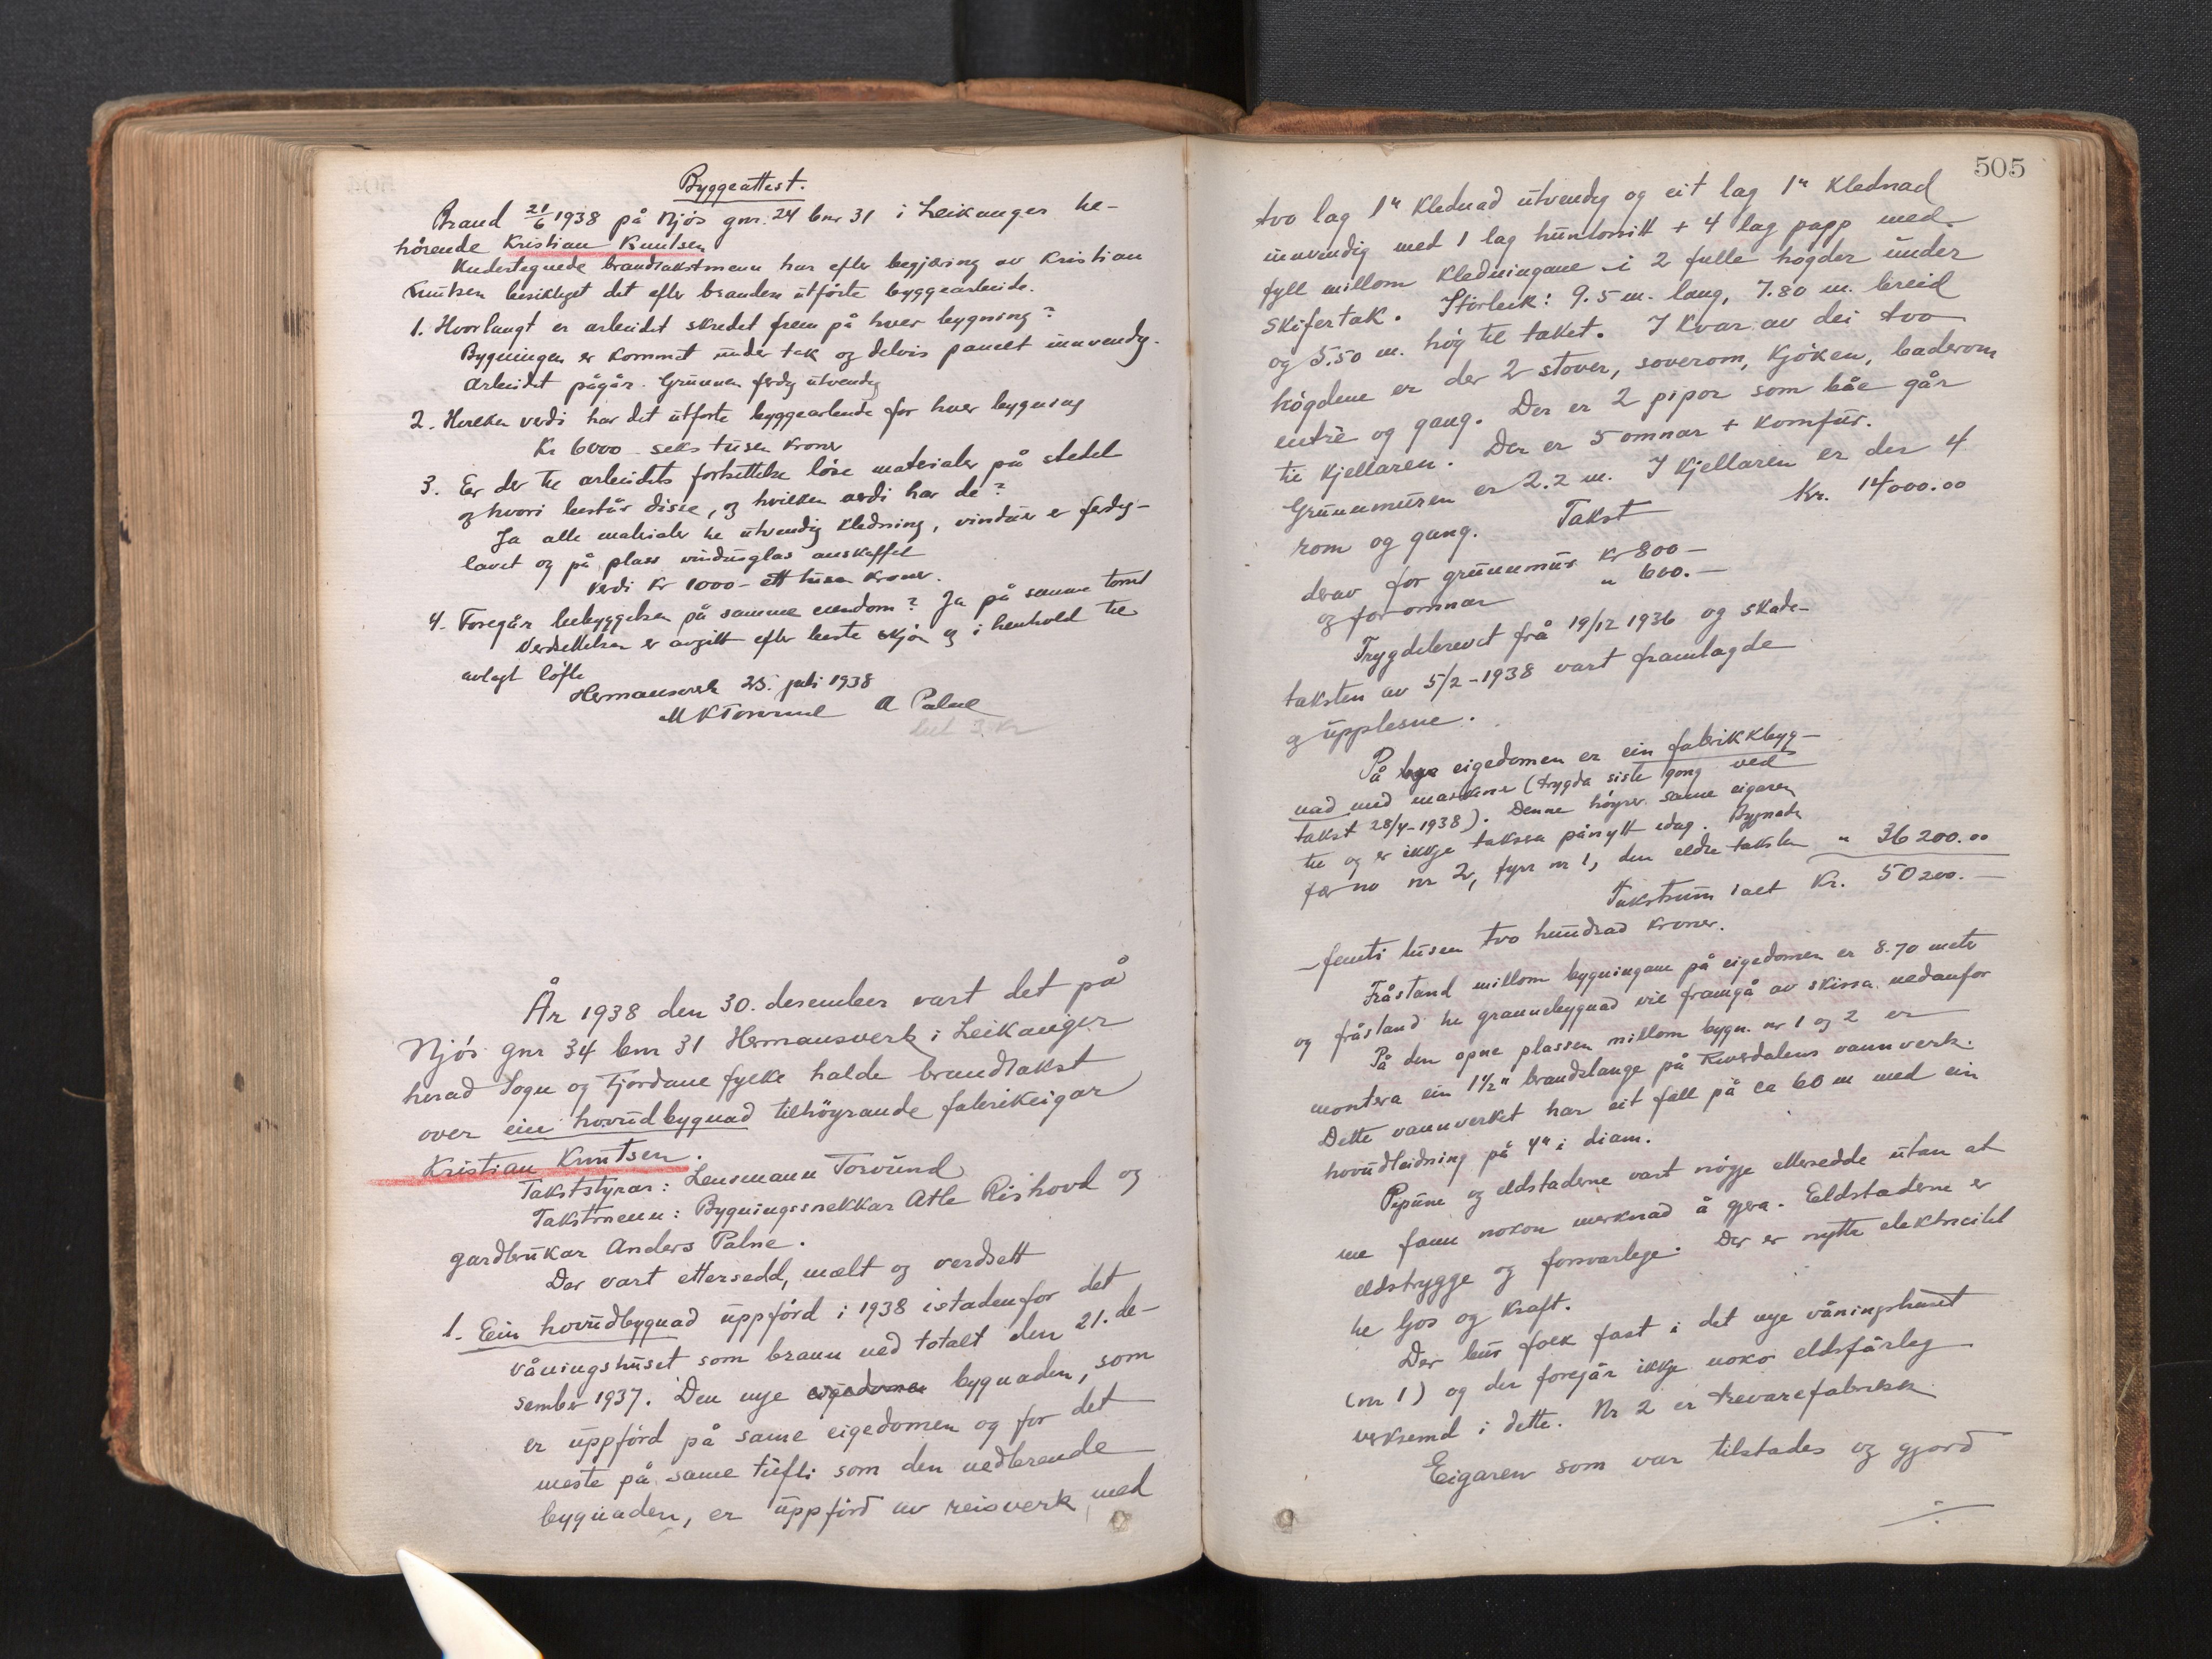 Byggeattest.
Brand 21/6 1938 på Njøs gnr. 24 bnr 31 i Leikanger be-
hørende Kristian Knutsen
Undertegnede brandtakstmenn har efter begjæring av Kristian
Knutsen besiktiget det efter branden utførte byggearbeide.
1. Hvorlangt er arbeidet skredet frem på hver bygning?
Bygningen er kommet under tak og delvis panelt innvendig.
Arbeidet pågår. Grunnen ferdig utvendig
2. Hvilken verdi har det utførte byggearbeide for hver bygning
Kr 6000 - seks tusen kroner
3. Er der til arbeidets fortsettelse løse materialer på stedet
og hvori består disse, og hvilken verdi har de?
Ja alle materialer til utvendig kledning, vinduer er ferdig-
lavet og på plass vindusglas anskaffet
Verdi kr 1000 - ett tusen kroner.
4. Foregår bebyggelsen på samme eiendom? Ja på samme tomt
Verdsettelsen er avgitt efter beste skjøn og i henhold til
avlagt løfte
Hermansverk 25. juli 1938
M K Torvund A Palne
bet 3. kr
År 1938 den 30. desember vart det på
Njøs gnr 34 bnr 31 Hermansverk i Leikanger
herad Sogn og Fjordane fylke halde brandtakst
over ein hovudbygnad tilhøyrande fabrikeigar
Kristian Knutsen.
Takststyrar: Lensmann Torvund
Takstmenn: Bygningssnekkar Atle Rishovd og
gardbrukar Anders Palne.
Der vart ettersedd, mælt og verdsett
1. Ein hovudbygnad uppførd i 1938 istadenfor det
våningshuset som brann ned totalt den 21. de-
sember 1937. Den nye eigedomen bygnaden, som
er uppførd på same eigedomen og for det
meste på same tufti som den nedbrende
bygnaden, er uppførd av reisverk med
505
tvo lag 1" klednad utvendig og eit lag 1" klednad
innvendig med 1 lag huntonitt + 4 lag papp med
fyll millom kledningane i 2 fulle høgder under
skifertak. Storleik: 9.5 m. lang, 7.80 m. breid
og 5.50 m. høg til taket. I kvar av dei tvo
høgdene er der 2 stover, soverom, kjøken, baderom
entrè og gang. Der er 2 pipor som båe går
til kjellaren. Der er 5 omnar + komfur.
Grunnmuren er 2.2 m. I kjellaren er der 4
rom og gang. Takst Kr. 14000.00
derav for grunnmur kr 800 —
og for omnar " 600. —
Trygdebrevet frå 19/12 1936 og skade-
taksten av 5/2 - 1938 vart framlagde
og upplesne.
På eigedomen er ein fabrikkbyg-
nad med maskiner (trygda siste gong ved
takst 28/4 - 1938). Denne høyrer same eigaren
til og er ikkje taksera pånytt idag. Bygnaden
fær no nr 2, fyrr nr 1, den eldre taksten " 36 200.00
Takstsum ialt Kr. 50 200. —
— femti tusen tvo hundrad kroner.
Fråstand millom bygningane på eigedomen er 8.70 meter
og fråstand til grannebygnad vil framgå av skissa nedanfor
På den opne plassen millom bygn. nr 1 og 2 er
montera ein 1 1/2" brandslange på Kvérdalens vannverk.
Dette vannverket har eit fall på ca 60 m med ein
hovudleidning på 4" i diam.
Pipune og eldstadene vart nøgje ettersedde utan at
me fann nokon merknad å gjera. Eeldstadene er
eldstrygge og forsvarlege. Der er nytta elektricitet
til ljos og kraft.
Der bur folk fast i det nye våningshuset
(nr 1) og der foregår ikkje noko eldsfårleg
verksemd i dette. Nr 2 er trevarefabrikk
Eigaren som var tilstades og gjord
./.